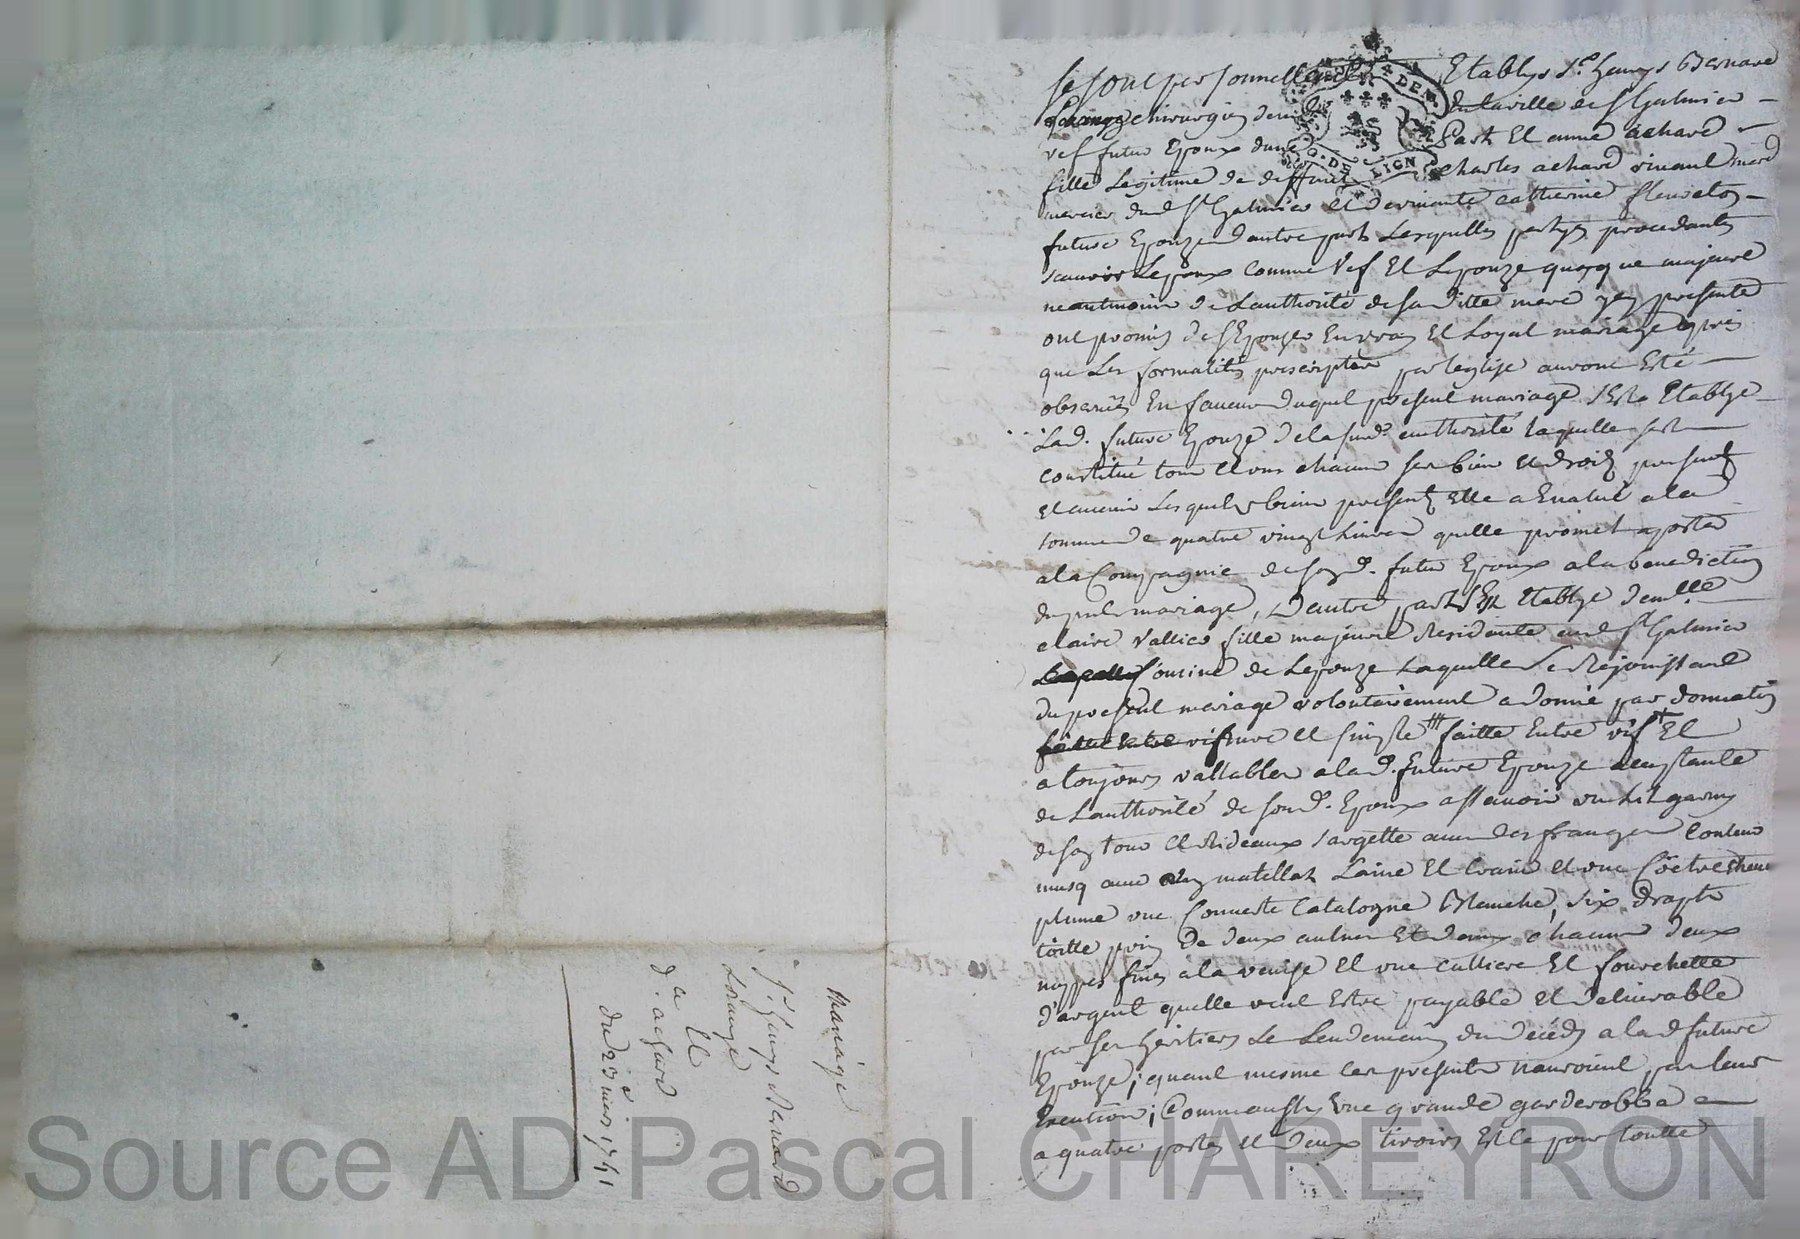 Mariage
Sr. henrys Bernard
Lorange
et
a
d. achard
du 23e mars 1741
Se sont personnellement Etablys Sr. henrys Bernard
Lorange chirurgien de la ville de St Galmier
vef futur Epoux dune Part Et anne achard
fille Legitime de deffunt charles achard vivant md
mercier dud St Galmier et de vivante catherine fleureton
future Epouze dautre part Lesquelles partyes procedantes
scavoir Lepoux comme Vef Et Lepouze quoyque majeure
neantmoins de Lauthorité de sa ditte mere yey presente
ont promis de sEpouzer En vray Et Loyal mariage apres
que Les formalites prescriptes par leglize auront Esté
observés En faveur duquel present mariage sEst Etablye
Lad. future Epouze de la susd. authorité laquelle sest
constitué tous et uns chacuns ses biens et droits presents
et avenir Lesquels biens presents Elle a Evalué a la
somme de quatre vingt Livres quelle promet aporter
a la Compagnie de sond. futur Epoux a la benediction
du pnt mariage, Dautre part sEst Etablye demlle
claire Vallier fille majeure Residante aud St Galmier
Cousine de Lepouze Laquelle se Rejouissant
du present mariage volontairement a donné par donnation
pure et simple faitte Entre vifs Et
a toujours vallable a lad. future Epouze acceptante
de Lauthorité de sond. Epoux assavoir un Lit garny
de son tour et Rideaux sargette avec des franges Couleur
musq avec un matellat Laine Et Crain et une Coëtre
plume une Couverte Catalogne Blanche, six draps
toille prin de deux aulnes Et demy chacun deux
nappes fines a la venise Et une culliere Et fourchette
d'argent quelle veut Estre payable et delivrable
par ses heritiers Le Lendemain du decéds a lad future
Epouze; quant mesme les presentes nauroient par leur
Execution; Comme aussy une grande garderobbe
a quatre portes et deux tiroirs Et le pour toutte
Source AD Pascal CHAREYRON